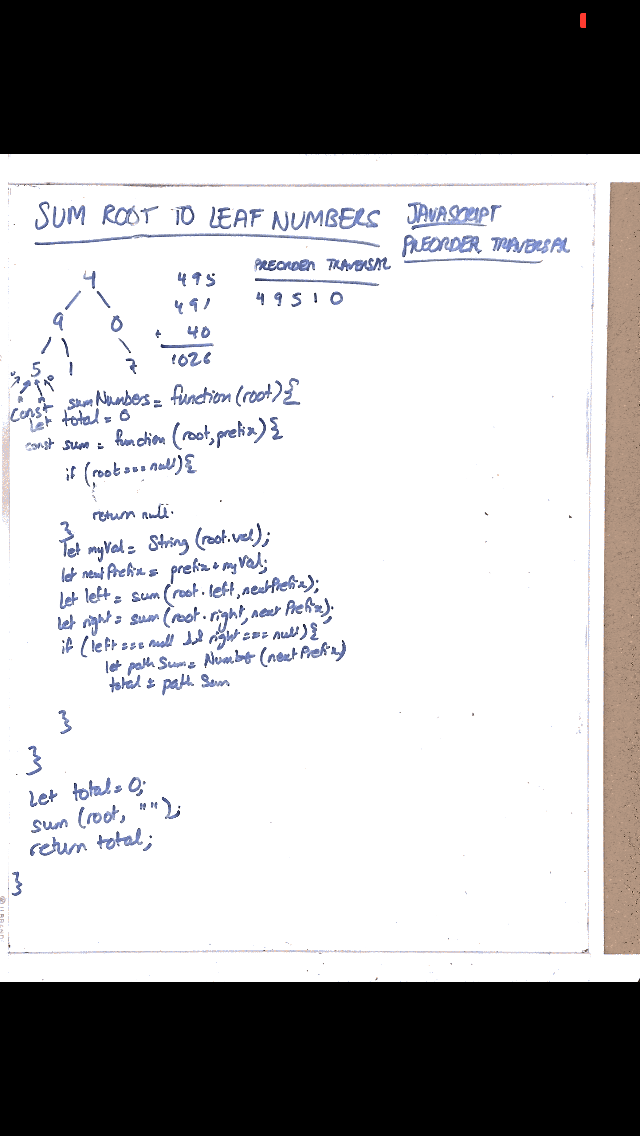 SUM ROOT TO LEAF NUMBERS
JAVASCRIPT
PREORDER TRAVERSAL
PREORDER TRAVERSAL
4 9 5 1 0
4
9 0
5 1 7
495
491
+ 40
1026
const sumNumbers = function(root){
let total = 0
const sum = function (root, prefix){
if (root === null){
return null.
}
let myVal = String (root.val);
let nextPrefix = prefix + myVal;
let left = sum (root.left, nextPrefix);
let right = sum (root.right, next Prefix);
if (left === null && right === null){
let path Sum = Number (next Prefix)
total ± path Sum
}
}
let total = 0;
sum (root, "");
return total;
}